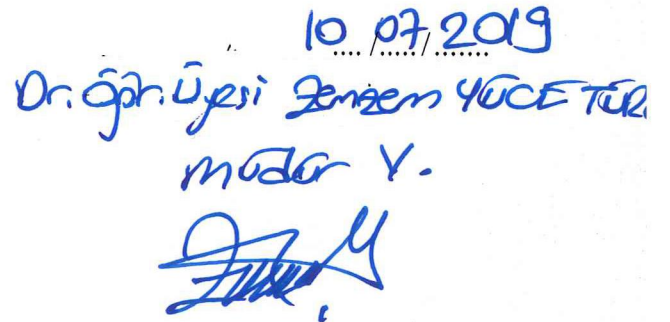 10/07/2019
Dr. Öğr. Üyesi Zemzem YÜCETÜR
Müdür V.